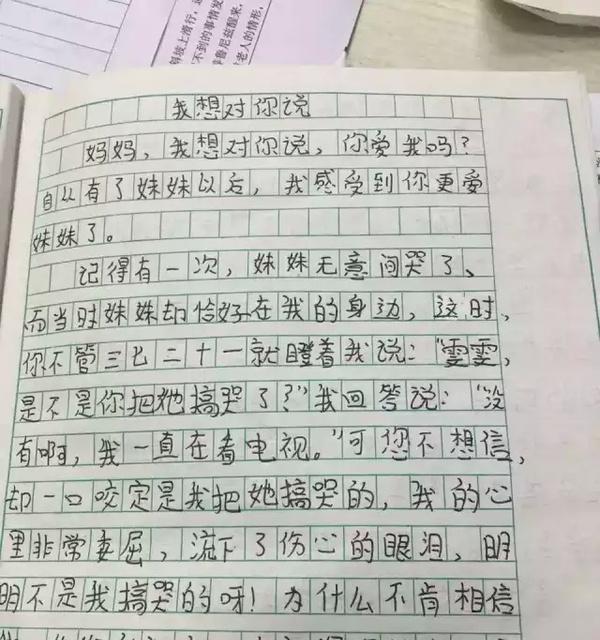 斜坡上滑行，
不到的事情发
鲁尼兹醒来，
老人的情形，
我想对你说
妈妈，我想对你说，你爱我吗？
自从有了妹妹以后，我感受到你更爱
妹妹了。
记得有一次，妹妹无意间哭了、
而当时妹妹却恰好在我的身边，这时，
你不管三七二十一就瞪着我说：“雯雯，
是不是你把她搞哭了？”我回答说：“没
有啊，我一直在看电视。”可您不想信，
却一口咬定是我把她搞哭的，我的心
里非常委屈，流下了伤心的眼泪，明
明不是我搞哭的呀！为什么不肯相信